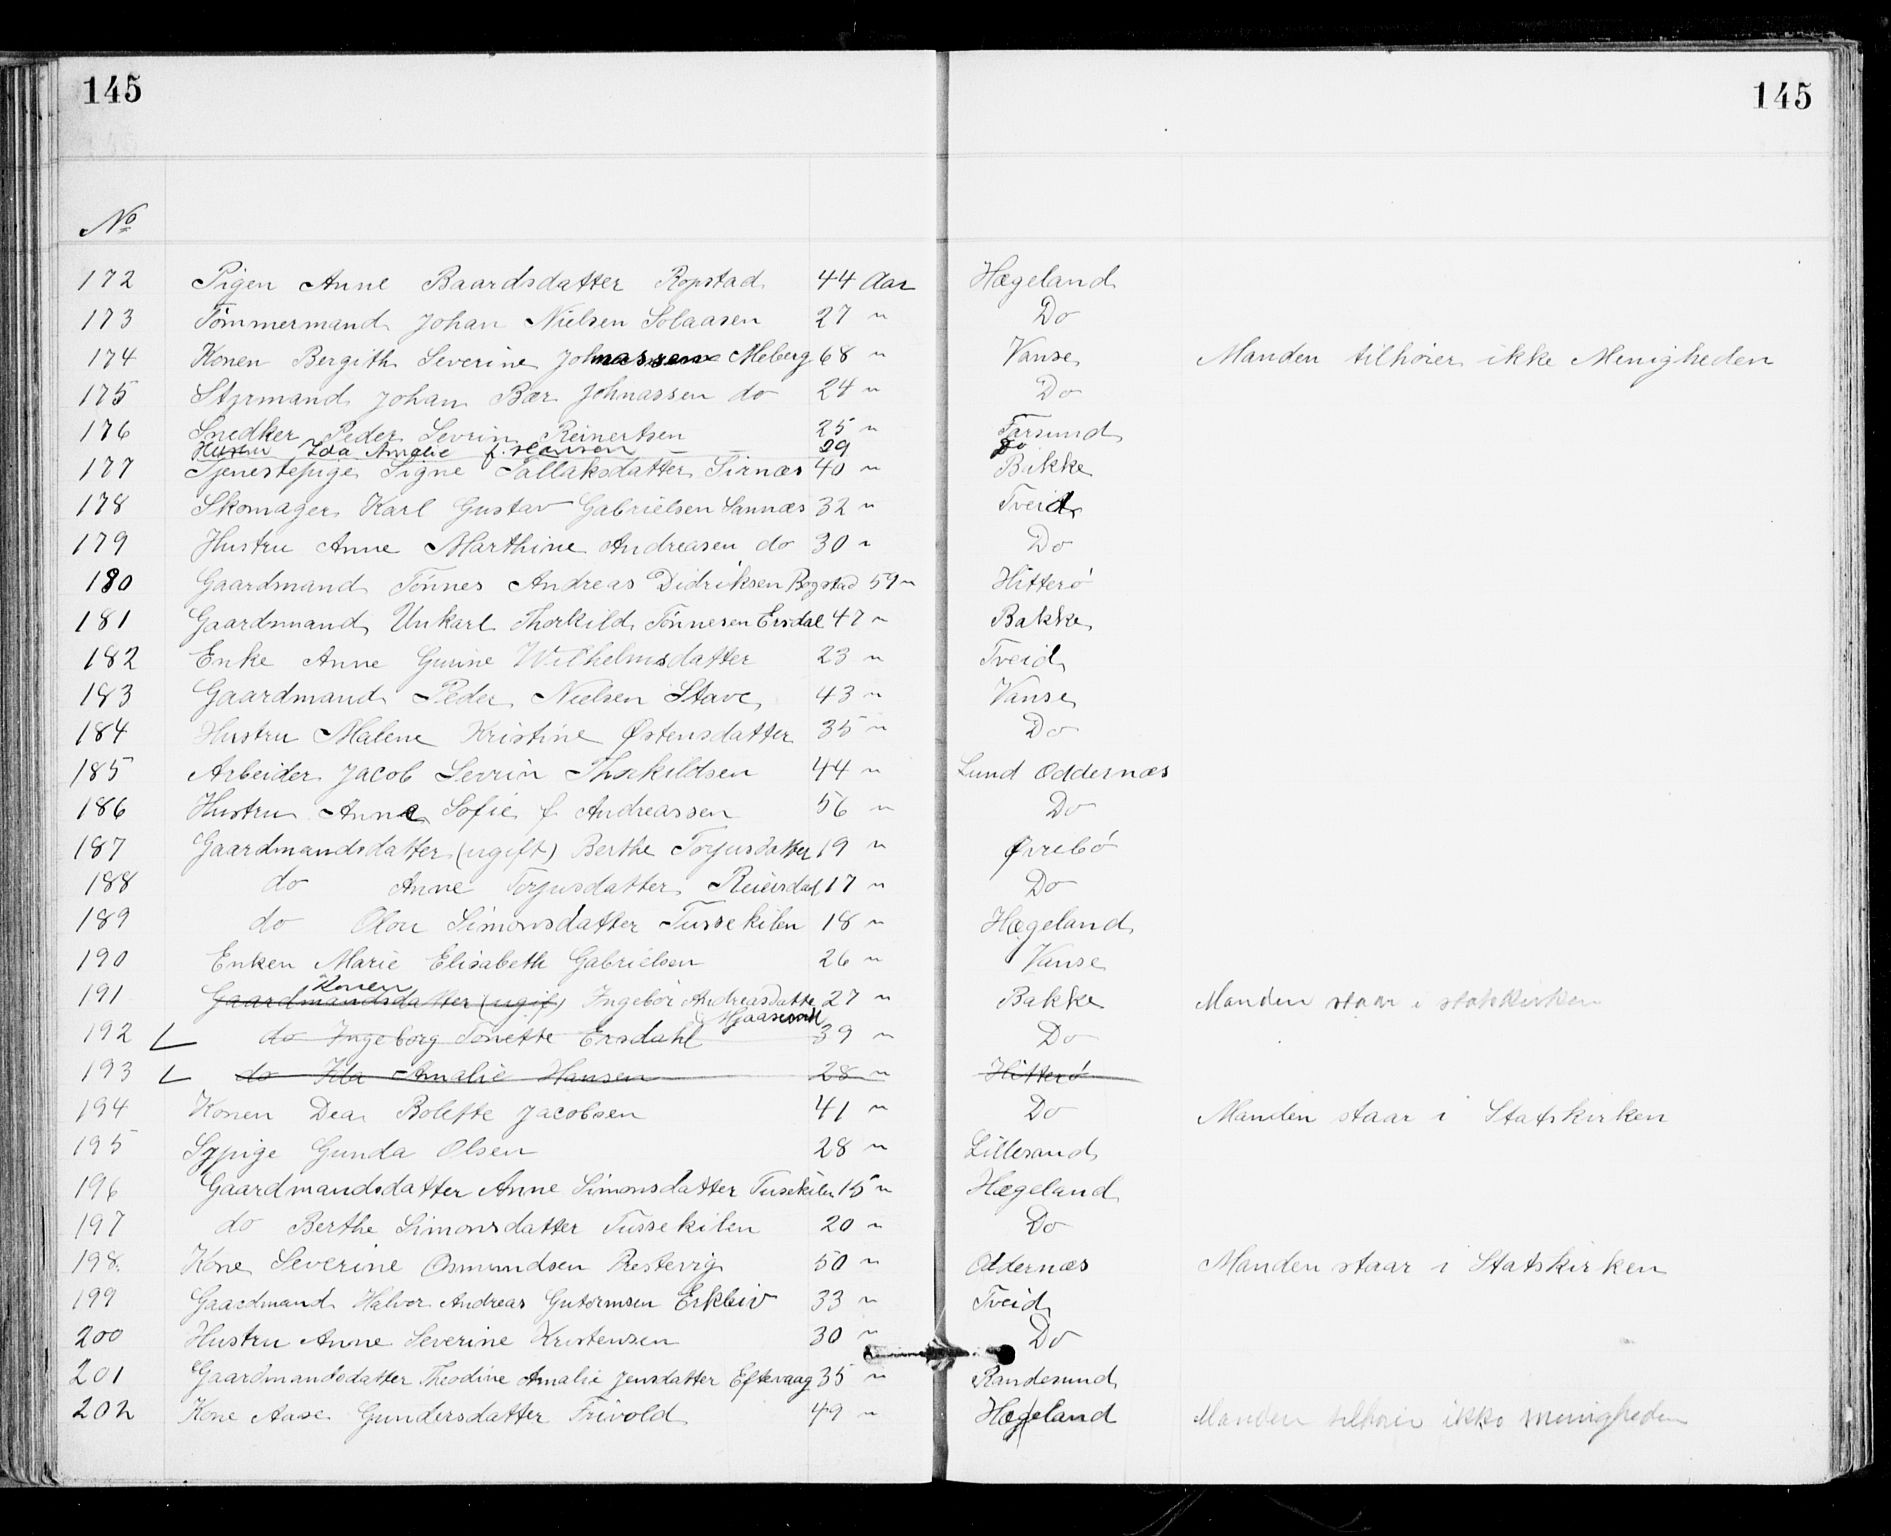 145 145
No
172 Pigen Anne Baardsdatter Ropstad 44 Aar Hægeland
173 Tømmermand Johan Nielsen Solaasen 27 " Do
174 Konen Bergith Severine Johnassen Meberg 68 " Vanse Manden tilhører ikke Menigheden
175 Styrmand Johan Bær Johnassen do 24 " Do
176 Snedker Peder Sevrin Reinertsen 25 " Farsund
Hustru Ida Amalie f. Hansen — — 29 Do
177 Tjenestepige Signe Tallaksdatter Sirnæs 40 " Bakke
178 Skomager Karl Gustav Gabrielsen Sannæs 32 " Tveid
179 Hustru Anne Marthine Andreasen do 30 " Do
180 Gaardmand Tønnes Andreas Didriksen Rogstad 59 " Hitterø
181 Gaardmand Unkarl Thorkild Tønnesen Ersdal 47 " Bakke
182 Enke Anne Gurine Wilhelmsdatter 23 " Tveid
183 Gaardmand Peder Nielsen Stave 43 " Vanse
184 Hustru Malene Kristine Østensdatter 35 " Do
185 Arbeider Jacob Sevrin Thorkildsen 44 " Lund Oddernæs
186 Hustru Anne Sofie f. Andreassen 56 " Do
187 Gaardmandsdatter (ugift) Berthe Torjusdatter 19 " Øvrebø
188 do Anne Torjusdatter Reiersdal 17 " Do
189 do Olou Simonsdatter Tussekilen 18 " Hægeland
190 Enken Marie Elisabeth Gabrielsen 26 " Vanse
Konen
191 Gaardmandsdatter (ugift) Ingebor Andreasdatte 27 " Bakke Manden staar i statskirken
192 do Ingeborg Tonette Ersdahl 39 " Do
193 do Ida Amalie Hansen 28 " Hitterø
194 Konen Dea Bolette Jacobsen 41 " Do Manden staar i Statskirken
195 Sypige Gunda Olsen 28 " Lillesand
196 Gaardmandsdatter Anne Simonsdatter Tusekilen 15 " Hægeland
197 do Berthe Simonsdatter Tussekilen 20 " Do
198. Kone Severine Osmundsen Restevig 50 " Oddernæs Manden staar i Statskirken
199 Gaardmand Halvor Andreas Gutormsen Erkleiv 33 " Tveid
200 Hustru Anne Severine Kristensen 30 " Do
201 Gaardmandsdatter Theodine Amalie Jensdatter Eftevaag 35 " Randesund
202 Kone Aase Gundersdatter Frivold 49 " Hægeland Manden tilhører ikke menigheden